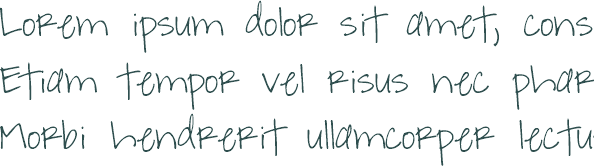 Lorem ipsum dolor sit amet, cons
Etiam tempor vel risus nec phar
Morbi hendrerit ullamcorper lectu